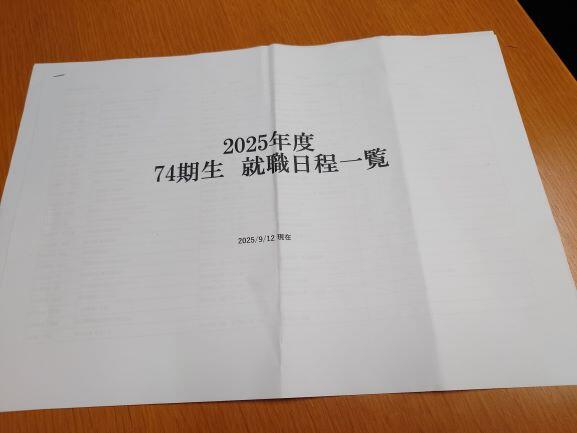 2025年度
74期生 就職日程一覧
2025/9/12 現在